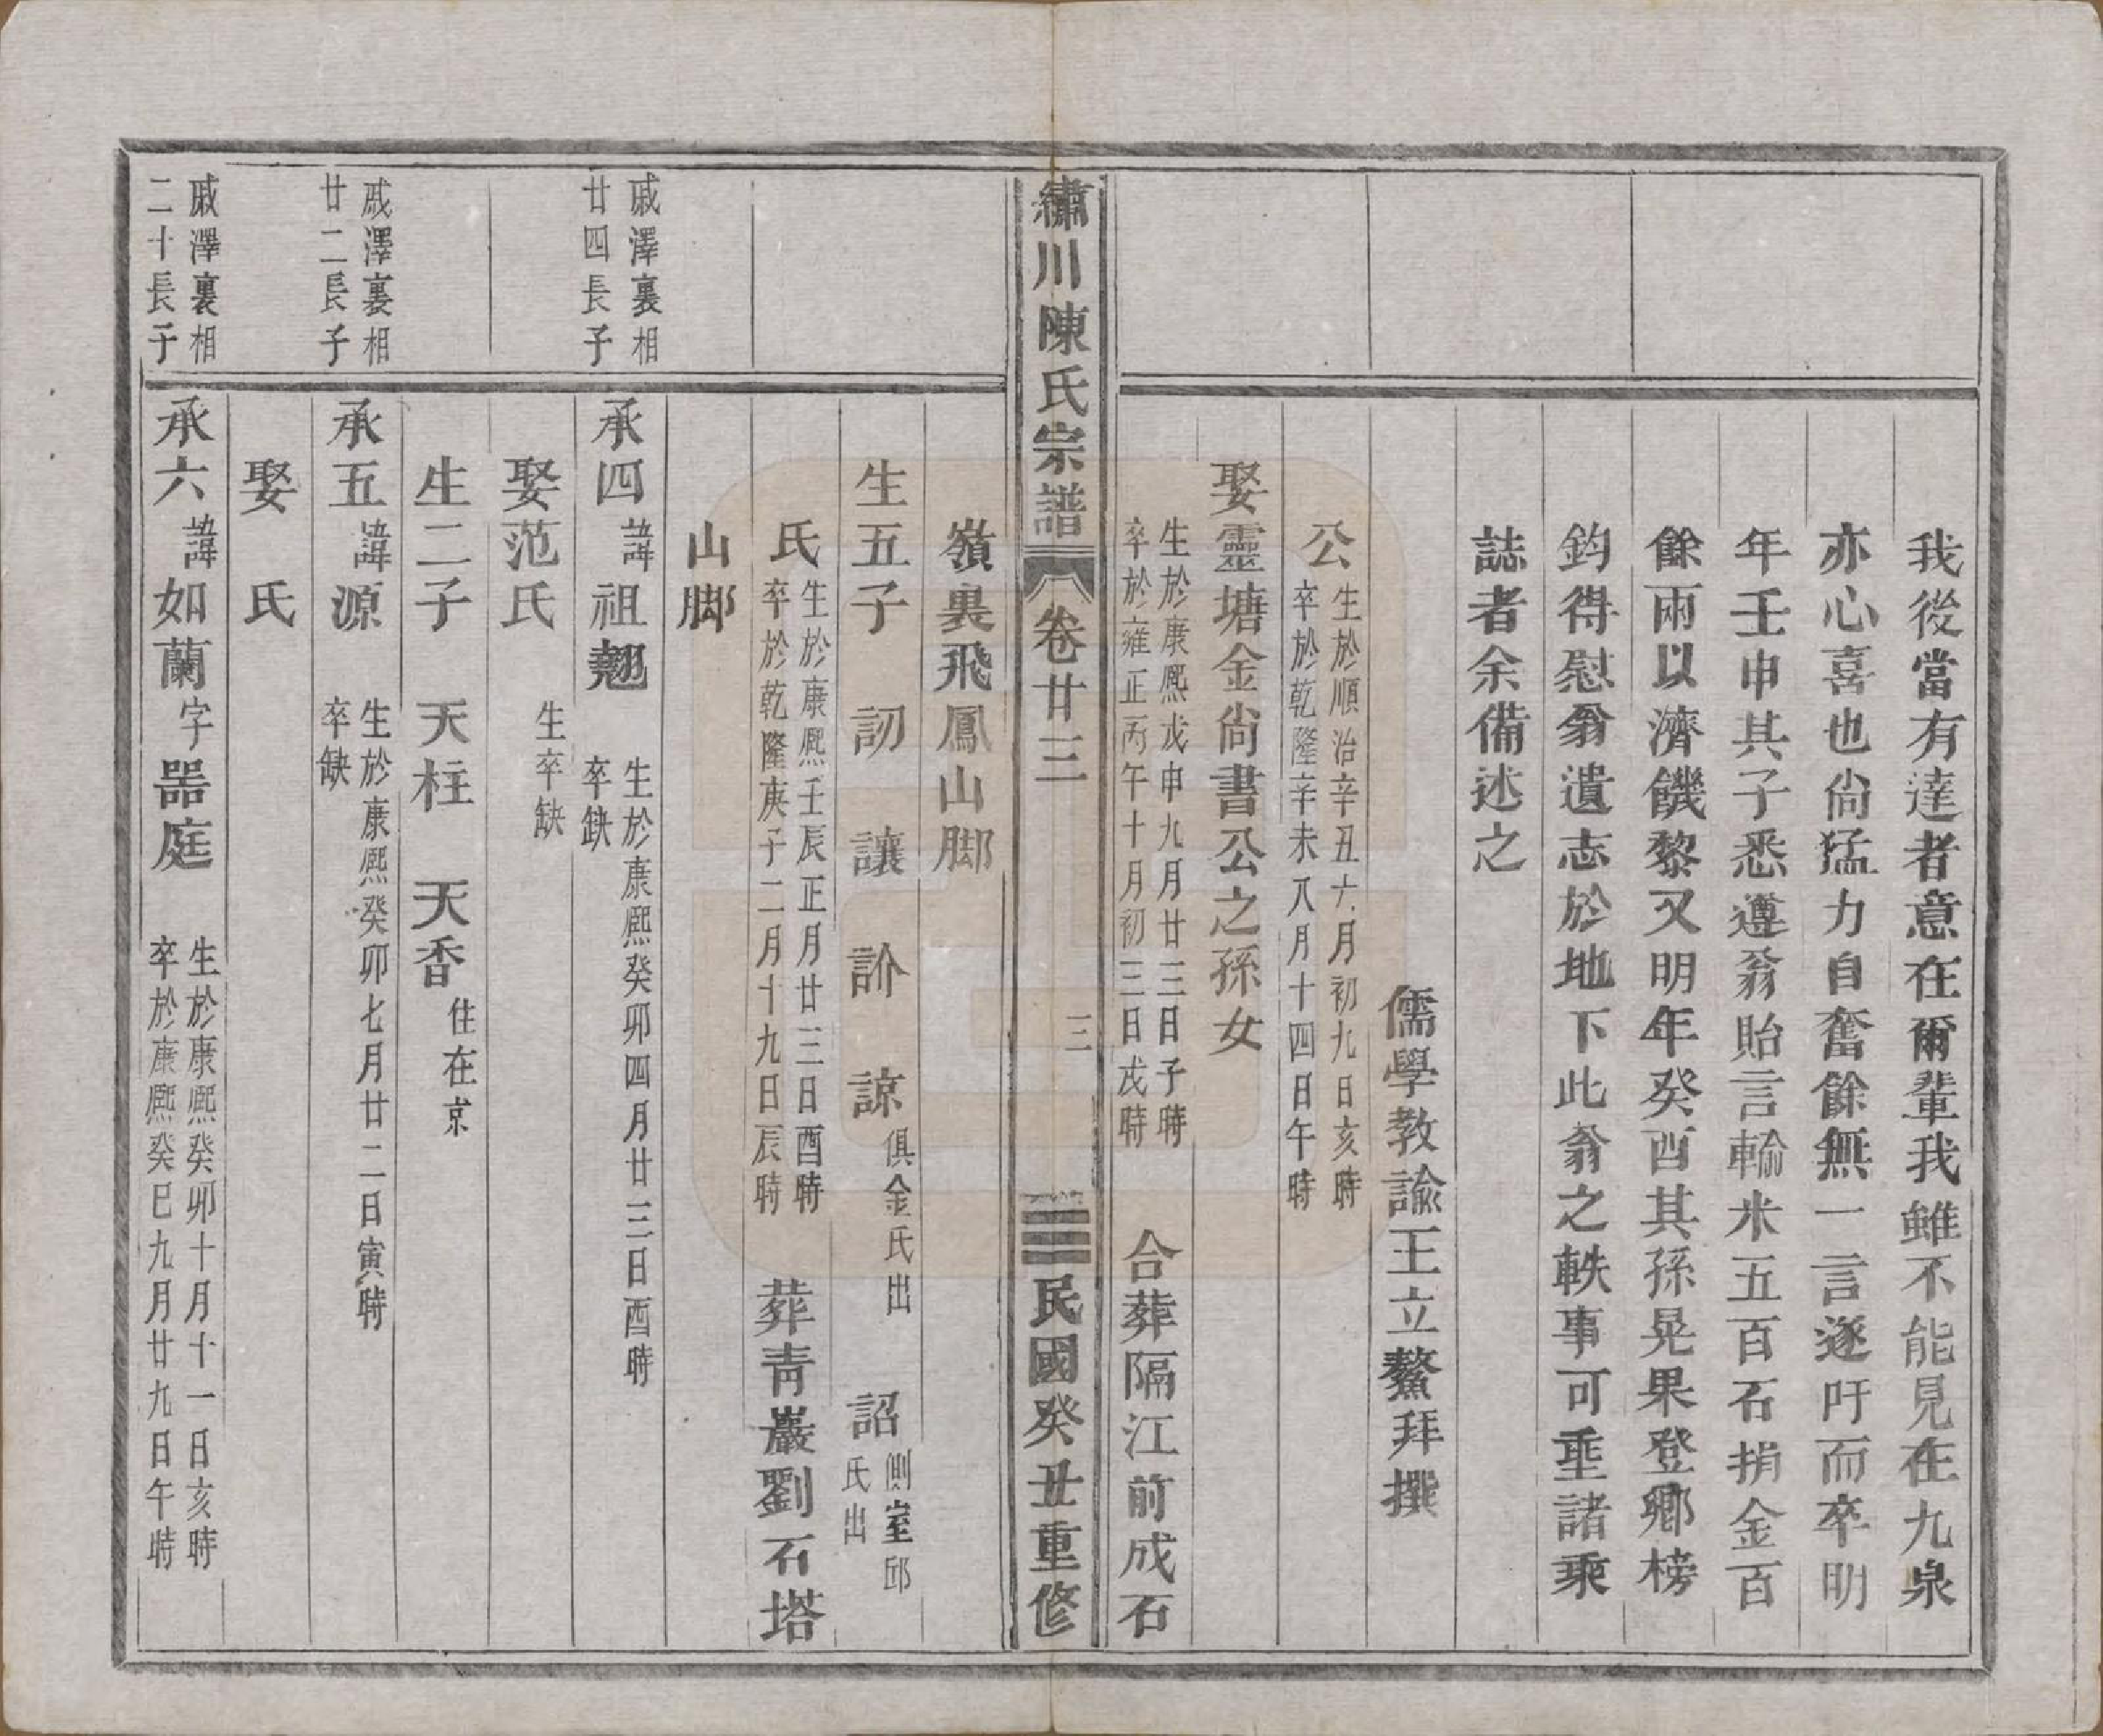 我後當有達者意在爾輩我雖不能見在九泉
亦心喜也尙猛力自奮餘無一言逐吁而卒明
年壬申其子悉遵翁貽言輸米五百石捐金百
餘兩以濟饑黎又明年癸酉其孫晃果登鄉榜
鈞得慰翁遺志於地下此翁之軼事可垂諸乘
誌者余備述之
儒學教諭王立鰲拜撰
公
生於順治辛丑六月初九日亥時
卒於乾隆辛未八月十四日午時
娶靈塘金尙書公之孫女
生於康熙戊申九月廿三日子時
卒於雍正丙午十月初三日戌時
合葬隔江前成石
繡川陳氏宗譜
卷廿三
三
民國癸丑重修
嶺裏飛鳳山脚
生五子 訒 讓 訡 諒 俱金氏出 詔 側室邱氏出
氏
生於康熙壬辰正月廿三日酉時
卒於乾隆庚子二月十九日辰時
葬靑巖劉石塔
山脚
戚澤裏相
廿四長子
承四 諱祖翹
生於康熙癸卯四月廿三日酉時
卒缺
娶范氏 生卒缺
生二子 天柱 天香 住在京
戚澤裏相
廿二長子
承五 諱源
生於康熙癸卯七月廿二日寅時
卒缺
娶 氏
戚澤裏相
二十長子
承六 諱如蘭字㗊庭
生於康熙癸卯十月十一日亥時
卒於康熙癸巳九月廿九日午時